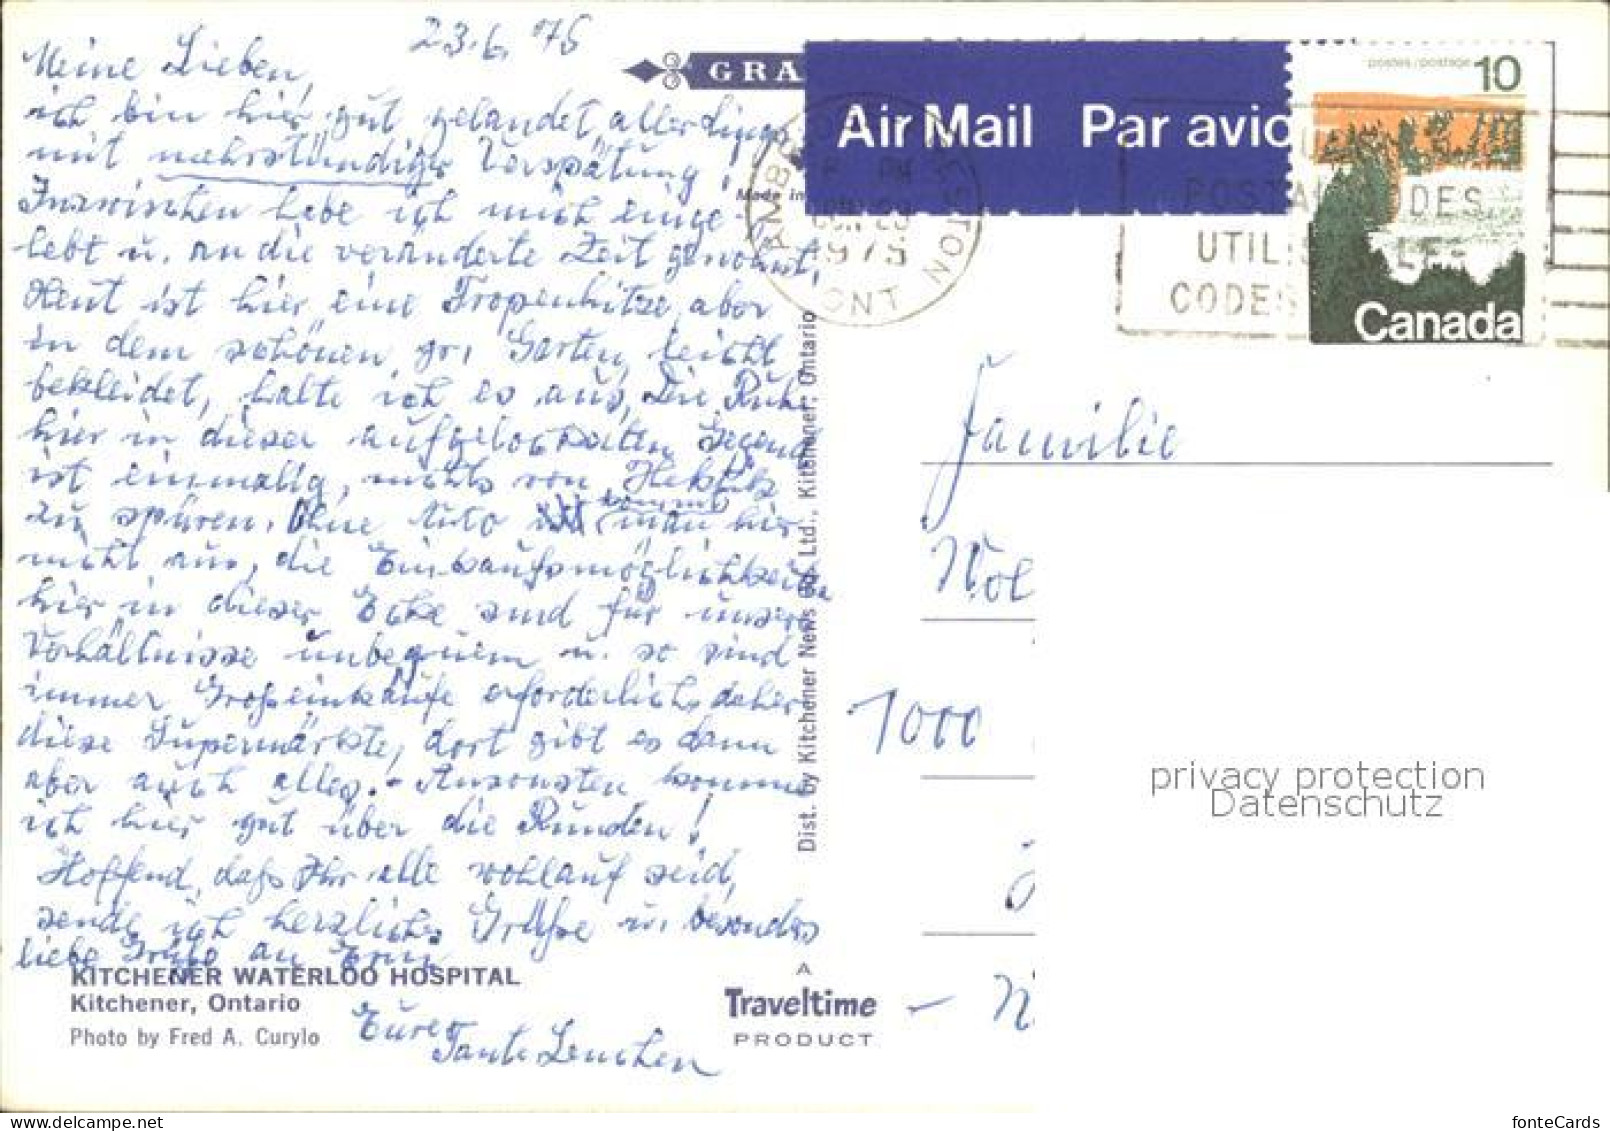 23.6.75
Meine Lieben,
ich bin hier gut gelandet, allerdings
mit mehrstündiger Verspätung!
Inzwischen habe ich mich einge-
lebt u. an die veränderte Zeit gewöhnt,
Heut ist hier eine Tropenhitze, aber
in dem schönen, gr. Garten, leicht
bekleidet, halte ich es aus, die Ruhe
hier in dieser Gegend
ist einmalig, nichts von Hektik
zu spüren. Ohne Auto kommt man hier
nicht aus, die Einkaufsmöglichkeiten
hier in dieser Ecke sind für unsere
Verhältnisse unbequem u. so sind
immer Großeinkäufe erforderlich, daher
diese Supermärkte, dort gibt es dann
aber auch alles. - Ansonsten komme
ich hier gut über die Runden!
Hoffend, daß Ihr alle wohlauf seid,
sende ich herzliche Grüße u. besonders
liebe Grüße an
Eure
Tante Lenchen
KITCHENER WATERLOO HOSPITAL
Kitchener, Ontario
Photo by Fred A. Curylo
GRA
Made in
Dist. by Kitchener News Co. Ltd., Kitchener, Ontario
A
Traveltime
PRODUCT
Air Mail Par avion
postes/postage 10
Canada
PM
1975
ONT
POSTAL CODES
UTILISEZ LES
CODES
Familie
Wol
1000
privacy protection
Datenschutz
fonteCards